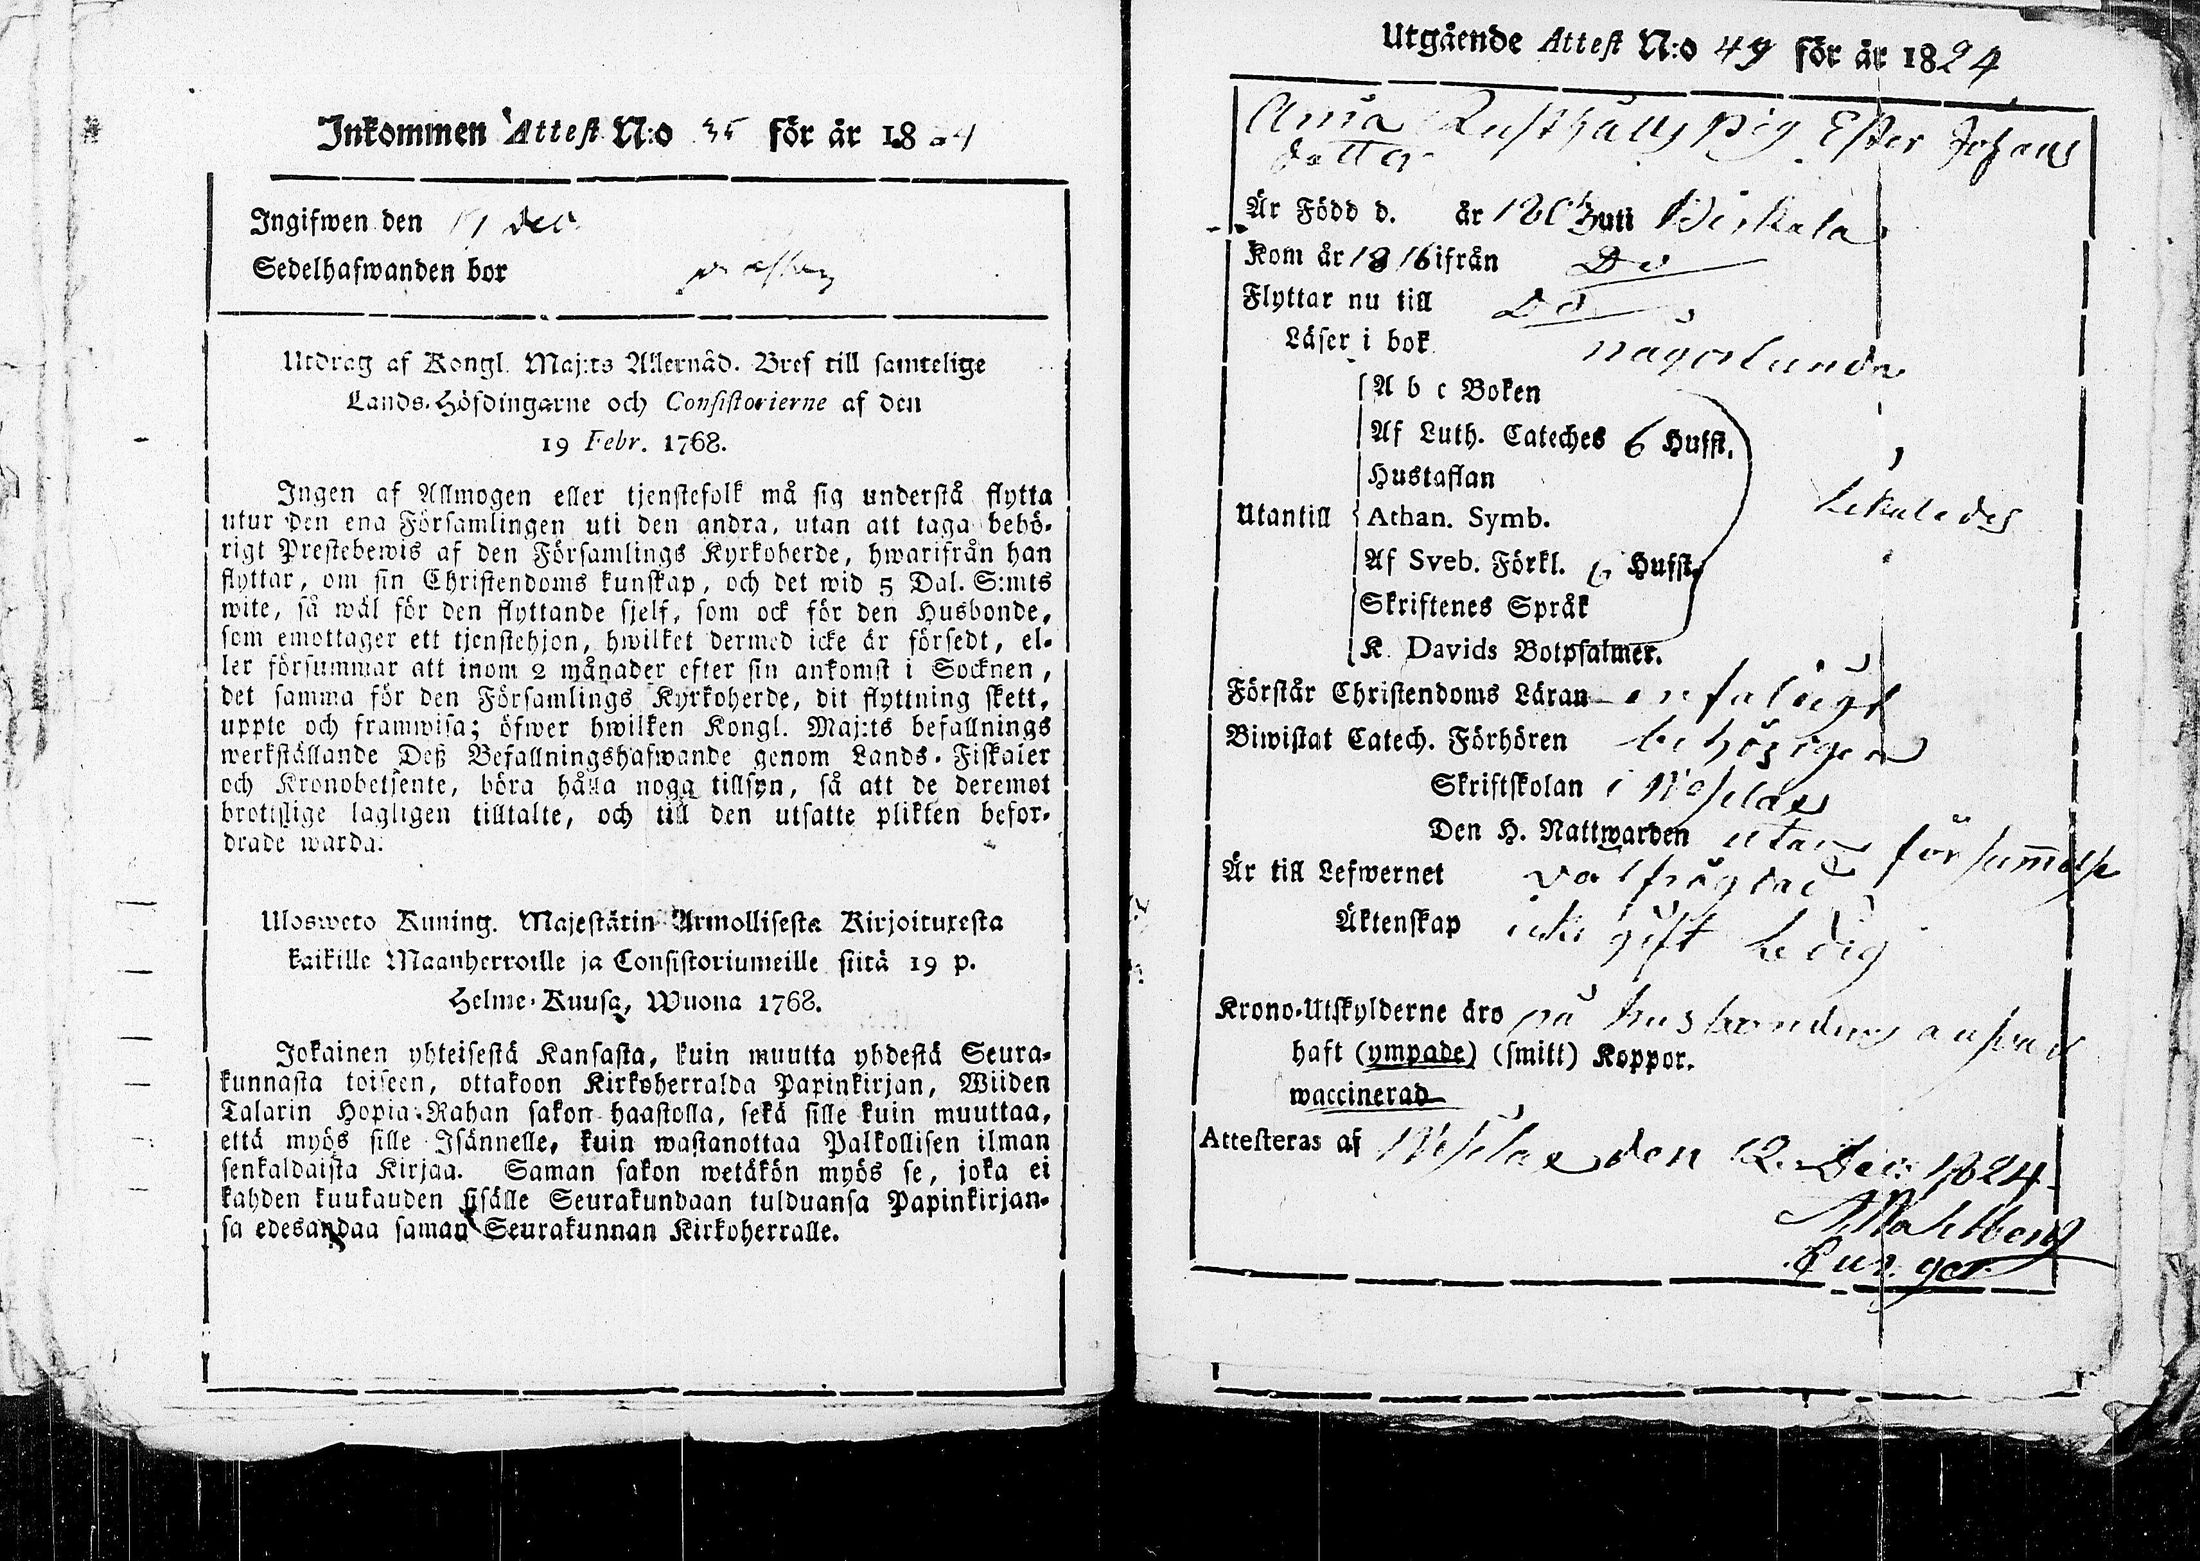 Inkommen Attest N:o 35 för år 1824
Ingifwen den 17 Dec
Sedelhafwanden bor
Utdrag af Kongl. Maj:ts Allernåd. Bref till samtelige
Lands-Höfdingarne och Consistorierne af den
19 Febr. 1768.
Ingen af Allmogen eller tjenstefolk må sig understå flytta
utur den ena Församlingen uti den andra, utan att taga behö-
rigt Prestebewis af den Församlings Kyrkoherde, hwarifrån han
flyttar, om sin Christendoms kunskap, och det wid 5 Dal. S:mts
wite, så wäl för den flyttande sjelf, som ock för den Husbonde,
som emottager ett tjenstehjon, hwilket dermed icke är försedt, el-
ler försummar att inom 2 månader efter sin ankomst i Socknen,
det samma för den Församlings Kyrkoherde, dit flyttning skett,
uppte och framwisa; öfwer hwilken Kongl. Maj:ts befallnings
werkställande Deß Befallningshafwande genom Lands-Fiskaler
och Kronobetjente, böra hålla noga tillsyn, så att de deremot
brottslige lagligen tilltalte, och till den utsatte plikten befor-
drade warda.
Uloswero Kuning. Majestätin Armollisesta Kirjoituxesta
kaikille Maanherroille ja Consistoriumeille siitä 19 p.
Helme-Kuusa, Wuona 1768.
Jokainen yhteisestä Kansasta, kuin muutta yhdestä Seura-
kunnasta toiseen, ottakoon Kirkoherralda Papinkirjan, Wiiden
Talarin Hopia-Rahan sakon haastolla, sekä sille kuin muuttaa,
että myös sille Isännelle, kuin wastanottaa Palkollisen ilman
senkaldaista Kirjaa. Saman sakon wetäkön myös se, joka ei
kahden kuukauden sisälle Seurakundaan tulduansa Papinkirjan-
sa edesandaa saman Seurakunnan Kirkoherralle.
Utgående Attest N:o 49 för år 1824
Rusthålls pig Ester Johans
dotter
Är Född d. år 180 uti Birkala
Kom år 1816 ifrån Do
Flyttar nu till Do
Läser i bok någorlunda
A b c Boken
Af Luth. Cateches 6 Hufst.
Hustaflan
Utantill Athan. Symb. likaledes
Af Sveb. Förkl. 6 Hufst.
Skriftenes Språk
K. Davids Botpsalmer.
Förstår Christendoms Läran enfaldigt
Biwistat Catech. Förhören behörigen
Skriftskolan i Wesilax
Den H. Nattwarden utan försummelse
Är till Lefwernet välfrägdad
Äktenskap icke gift Ledig
Krono-Utskylderne äro på husbondens answar
haft (ympade) (smitt) Koppor.
waccinerad
Attesteras af Wesilax den 12 Dec: 1824
Wahlberg